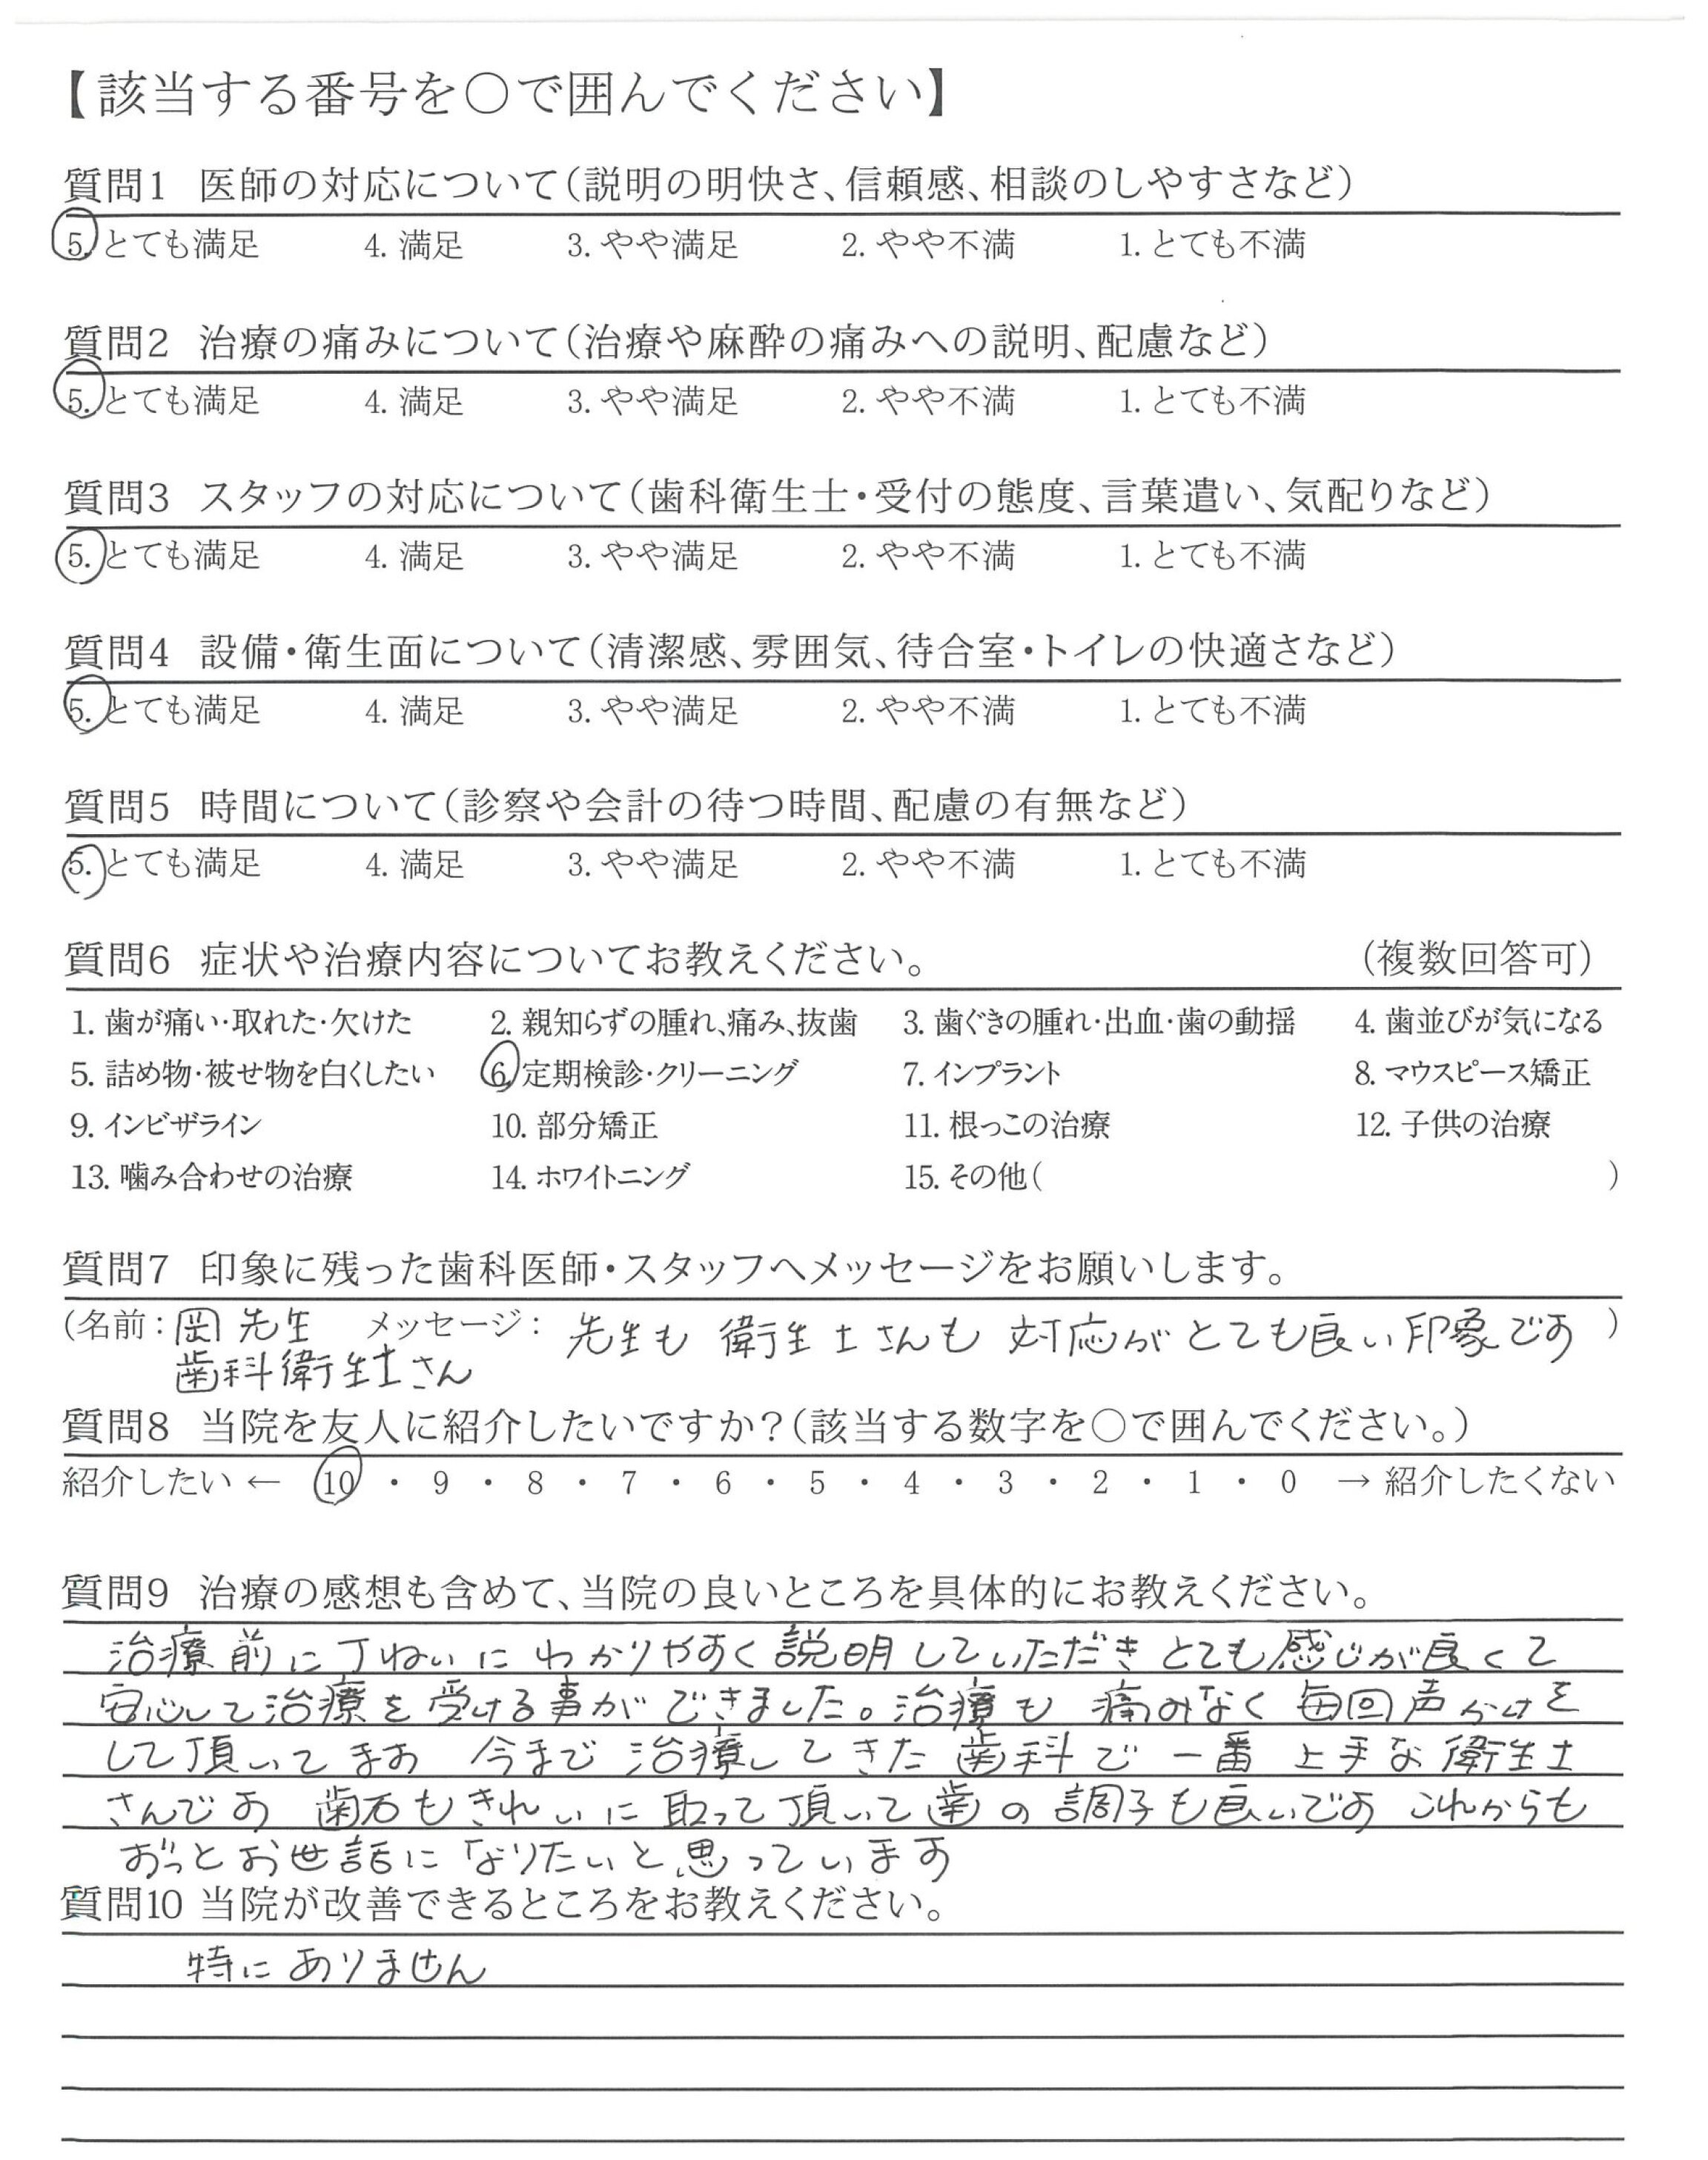 【該当する番号を○で囲んでください】
質問1 医師の対応について(説明の明快さ、信頼感、相談のしやすさなど)
5. とても満足 4. 満足 3. やや満足 2. やや不満 1. とても不満
質問2 治療の痛みについて(治療や麻酔の痛みへの説明、配慮など)
5. とても満足 4. 満足 3. やや満足 2. やや不満 1. とても不満
質問3 スタッフの対応について(歯科衛生士・受付の態度、言葉遣い、気配りなど)
5. とても満足 4. 満足 3. やや満足 2. やや不満 1. とても不満
質問4 設備・衛生面について(清潔感、雰囲気、待合室・トイレの快適さなど)
5. とても満足 4. 満足 3. やや満足 2. やや不満 1. とても不満
質問5 時間について(診察や会計の待つ時間、配慮の有無など)
5. とても満足 4. 満足 3. やや満足 2. やや不満 1. とても不満
質問6 症状や治療内容についてお教えください。 (複数回答可)
1. 歯が痛い・取れた・欠けた 2. 親知らずの腫れ、痛み、抜歯 3. 歯ぐきの腫れ・出血・歯の動揺 4. 歯並びが気になる
5. 詰め物・被せ物を白くしたい 6. 定期検診・クリーニング 7. インプラント 8. マウスピース矯正
9. インビザライン 10. 部分矯正 11. 根っこの治療 12. 子供の治療
13. 噛み合わせの治療 14. ホワイトニング 15. その他( )
質問7 印象に残った歯科医師・スタッフへメッセージをお願いします。
(名前:岡先生 メッセージ: 先生も 衛生士さんも 対応がとても良い印象です )
歯科衛生士さん
質問8 当院を友人に紹介したいですか?(該当する数字を○で囲んでください。)
紹介したい ← 10 ・ 9 ・ 8 ・ 7 ・ 6 ・ 5 ・ 4 ・ 3 ・ 2 ・ 1 ・ 0 → 紹介したくない
質問9 治療の感想も含めて、当院の良いところを具体的にお教えください。
治療前に丁ねいに わかりやすく説明していただき とても感じが良くて
安心して治療を受ける事ができました。治療も 痛みなく 毎回声かけを
して頂いてます 今まで 治療してきた 歯科で 一番 上手な衛生士
さんです 歯石もきれいに 取って頂いて歯の調子も良いです これからも
ずっとお世話に なりたいと思っています
質問10 当院が改善できるところをお教えください。
特に ありません